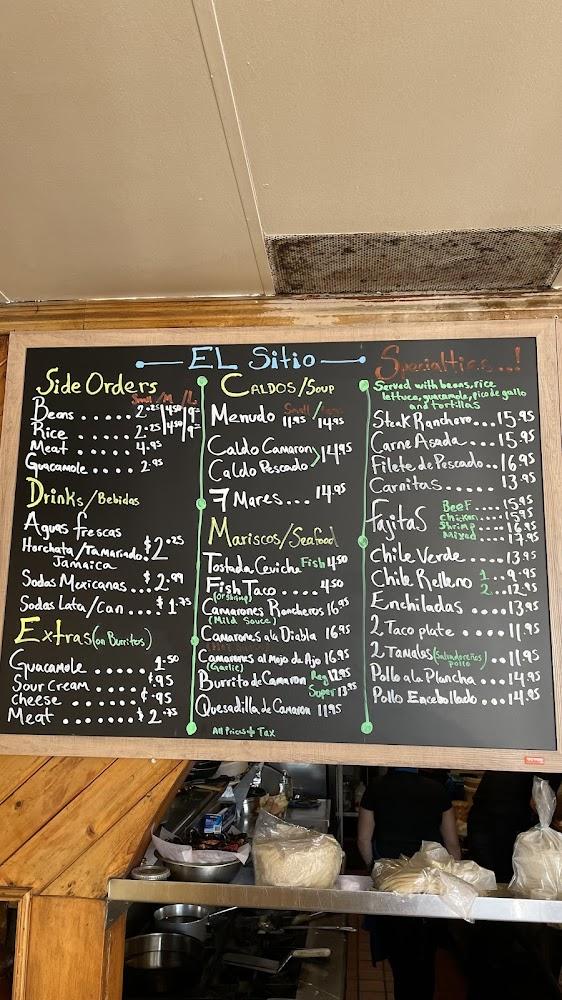 EL Sitio
Side Orders
Small / M / L
Beans ..... 2.25 / 4.50 / 9.00
Rice ...... 2.25 / 4.50 / 9.00
Meat ...... 4.95
Guacamole ..... 2.95
Drinks / Bebidas
Aguas frescas
Horchata / Tamarindo $2.25
Jamaica
Sodas Mexicanas ... $2.99
Sodas Lata / can .... $1.75
Extras (on Burritos)
Guacamole ....... 1.50
Sour Cream ...... ¢.95
Cheese ...... ¢.95
Meat ........ $2.75
CALDOS / SOUP
Small / Large
Menudo 11.95 14.95
Caldo Camaron
Caldo Pescado > 14.95
7 Mares .... 14.95
Mariscos / Seafood
Tostada Ceviche Fish 4.50
Fish Taco ..... 4.50
(or Shrimp)
Camarones Rancheros 16.95
(Mild Sauce)
Camarones a la Diabla 16.95
Camarones al Mojo de Ajo 16.95
(Garlic)
Burrito de Camaron Reg 12.95
Super 13.95
Quesadilla de Camaron 11.95
All Prices + Tax
Specialties..!
Served with beans, rice
lettuce, guacamole, pico de gallo
and tortillas
Steak Ranchero ... 15.95
Carne Asada .... 15.95
Filete de Pescado .. 16.95
Carnitas ...... 13.95
Fajitas
Beef .... 15.95
Chicken .... 15.95
Shrimp .... 16.95
Mixed .... 17.95
Chile Verde ..... 13.95
Chile Relleno 1 .. 9.95
2 .. 12.95
Enchiladas ..... 13.95
2 Taco plate ..... 11.95
2 Tamales (Salvadoreños pollo) .. 11.95
Pollo a la Plancha .... 14.95
Pollo Encebollado .... 14.95